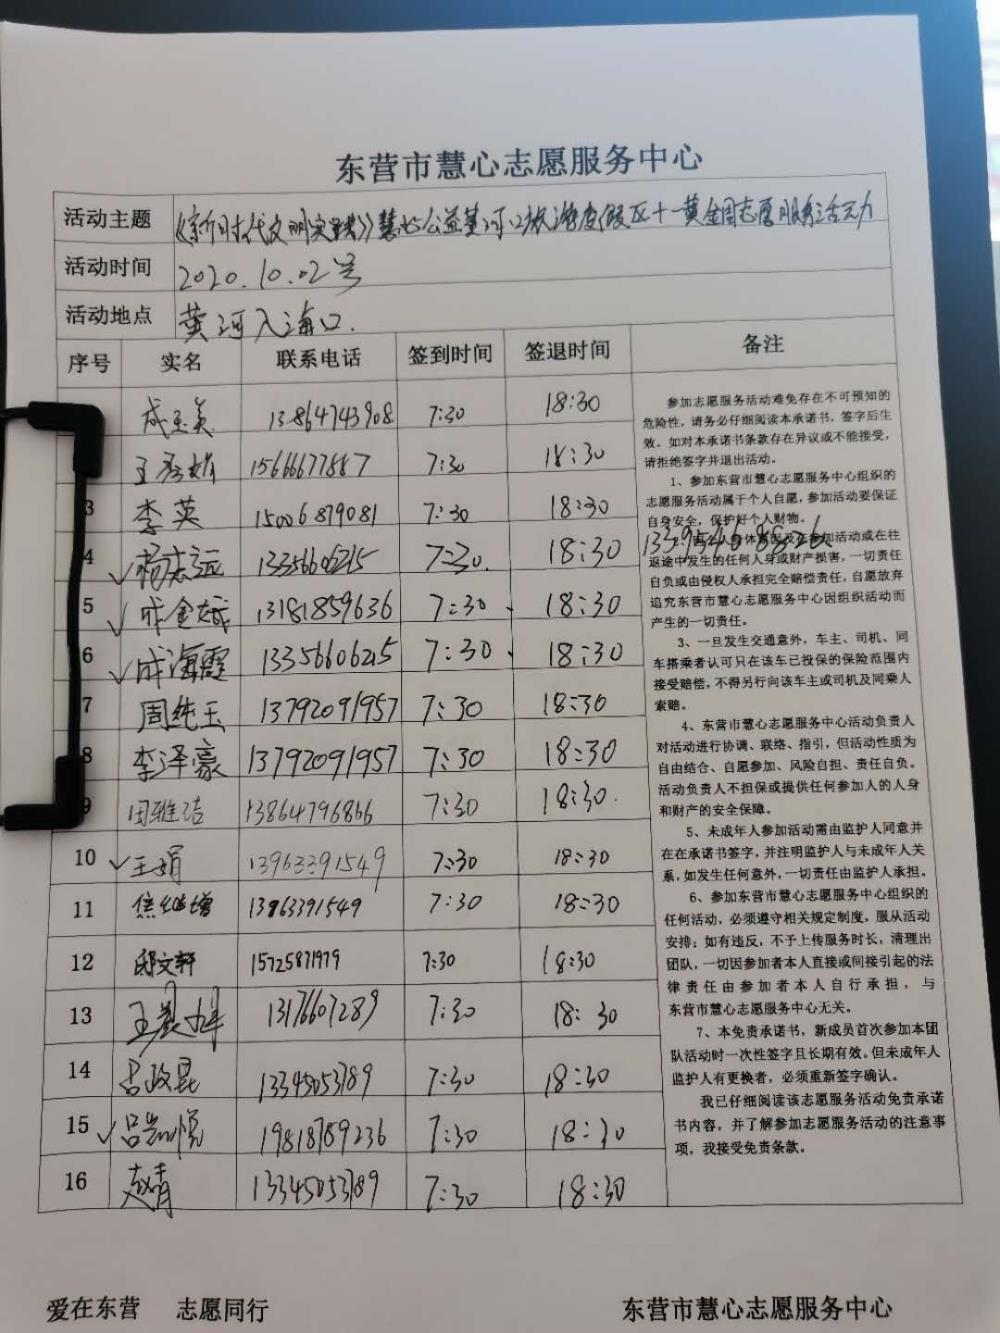 东营市慧心志愿服务中心
活动主题 《新时代文明实践》慧心公益黄河口旅游度假区十一黄金周志愿服务活动
活动时间 2020.10.02号
活动地点 黄河入海口.
序号 实名 联系电话 签到时间 签退时间 备注
成玉美 13864743908 7:30 18:30
15666677887 7:30 18:30
3 李英 15006879081 7:30 18:30
4 杨志远 13356606215 7:30 18:30
5 成金娥 13181859636 7:30 18:30
6 成海霞 13356606215 7:30 18:30
7 周纯玉 13792091957 7:30 18:30
8 李泽豪 13792091957 7:30 18:30
9 田雅洁 13864796866 7:30 18:30
10 王娟 13963391549 7:30 18:30
11 焦继增 13963391549 7:30 18:30
12 邸文轩 15725871979 7:30 18:30
13 13176607289 7:30 18:30
14 吕政昆 13345053789 7:30 18:30
15 19818789236 7:30 18:30
16 赵青 13345053789 7:30 18:30
参加志愿服务活动难免存在不可预知的
危险性，请务必仔细阅读本承诺书，签字后生
效。如对本承诺书条款存在异议或不能接受，
请拒绝签字并退出活动。
1、参加东营市慧心志愿服务中心组织的
志愿服务活动属于个人自愿，参加活动要保证
自身安全，保护好个人财物。
参加活动或在往
返途中发生的任何人身或财产损害，一切责任
自负或由侵权人承担完全赔偿责任，自愿放弃
追究东营市慧心志愿服务中心因组织活动而
产生的一切责任。
3、一旦发生交通意外，车主、司机、同
车搭乘者认可只在该车已投保的保险范围内
接受赔偿，不得另行向该车主或司机及同乘人
索赔。
4、东营市慧心志愿服务中心活动负责人
对活动进行协调、联络、指引，但活动性质为
自由结合、自愿参加、风险自担、责任自负。
活动负责人不担保或提供任何参加人的人身
和财产的安全保障。
5、未成年人参加活动需由监护人同意并
在在承诺书签字，并注明监护人与未成年人关
系，如发生任何意外，一切责任由监护人承担。
6、参加东营市慧心志愿服务中心组织的
任何活动，必须遵守相关规定制度，服从活动
安排；如有违反，不予上传服务时长，清理出
团队，一切因参加者本人直接或间接引起的法
律责任由参加者本人自行承担，与
东营市慧心志愿服务中心无关。
7、本免责承诺书，新成员首次参加本团
队活动时一次性签字且长期有效。但未成年人
监护人有更换者，必须重新签字确认。
我已仔细阅读该志愿服务活动免责承诺
书内容，并了解参加志愿服务活动的注意事
项，我接受免责条款。
爱在东营 志愿同行 东营市慧心志愿服务中心